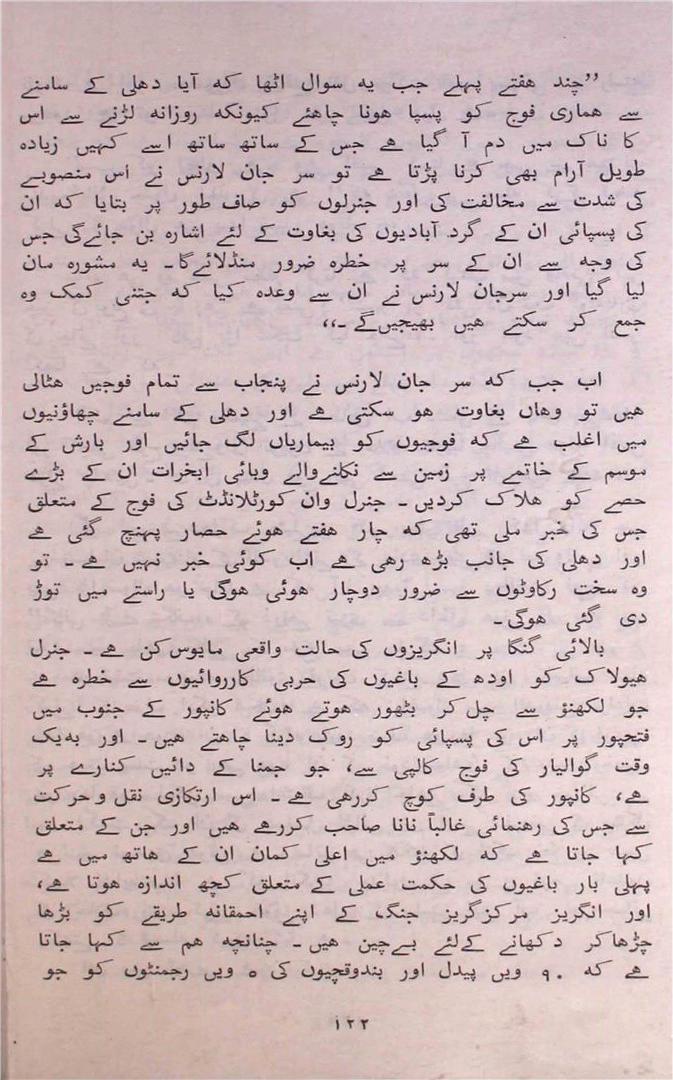 ’’چند ھفتے پہلے جب یہ سوال اٹھا کہ آیا دھلی کے سامنے
سے ھماری فوج کو پسپا ھونا چاھئے کیونکہ روزانہ لڑنے سے اس
کا ناک میں دم آ گیا ھے جس کے ساتھ ساتھ اسے کہیں زیادہ
طویل آرام بھی کرنا پڑتا ھے تو سر جان لارنس نے اس منصوبے
کی شدت سے مخالفت کی اور جنرلوں کو صاف طور پر بتایا کہ ان
کی پسپائی ان کے گرد آبادیوں کی بغاوت کے لئے اشارہ بن جائےگی جس
کی وجہ سے ان کے سر پر خطرہ ضرور منڈلائےگا۔ یہ مشورہ مان
لیا گیا اور سرجان لارنس نے ان سے وعدہ کیا کہ جتنی کمک وہ
جمع کر سکتے ھیں بھیجیں گے ۔،،
اب جب کہ سر جان لارنس نے پنجاب سے تمام فوجیں ھٹالی
ھیں تو وھاں بغاوت ھو سکتی ھے اور دھلی کے سامنے چھاؤنیوں
میں اغلب ھے کہ فوجیوں کو بیماریاں لگ جائیں اور بارش کے
موسم کے خاتمے پر زمین سے نکلنےوالے وبائی ابخرات ان کے بڑے
حصے کو ھلاک کردیں۔ جنرل وان کورٹلانڈٹ کی فوج کے متعلق
جس کی خبر ملی تھی کہ چار ھفتے ھوئے حصار پہنچ گئی ھے
اور دھلی کی جانب بڑھ رھی ھے اب کوئی خبر نہیں ھے۔ تو
وہ سخت رکاوٹوں سے ضرور دوچار ھوئی ھوگی یا راستے میں توڑ
دی گئی ھوگی۔
بالائی گنگا پر انگریزوں کی حالت واقعی مایوس کن ھے۔ جنرل
ھیولاک کو اودھ کے باغیوں کی حربی کارروائیوں سے خطرہ ھے
جو لکھنؤ سے چل کر بٹھور ھوتے ھوئے کانپور کے جنوب میں
فتحپور پر اس کی پسپائی کو روک دینا چاھتے ھیں۔ اور بہ یک
وقت گوالیار کی فوج کالپی سے، جو جمنا کے دائیں کنارے پر
ھے، کانپور کی طرف کوچ کررھی ھے۔ اس ارتکازی نقل و حرکت
سے جس کی رھنمائی غالباً نانا صاحب کررھے ھیں اور جن کے متعلق
کہا جاتا ھے کہ لکھنؤ میں اعلی کمان ان کے ھاتھ میں ھے
پہلی بار باغیوں کی حکمت عملی کے متعلق کچھ اندازہ ھوتا ھے،
اور انگریز مرکزگریز جنگ کے اپنے احمقانہ طریقے کو بڑھا
چڑھاکر دکھانے کےلئے بےچین ھیں۔ چنانچہ ھم سے کہا جاتا
ھے کہ ۹۰ ویں پیدل اور بندوقچیوں کی ۵ ویں رجمنٹوں کو جو
۱۲۲